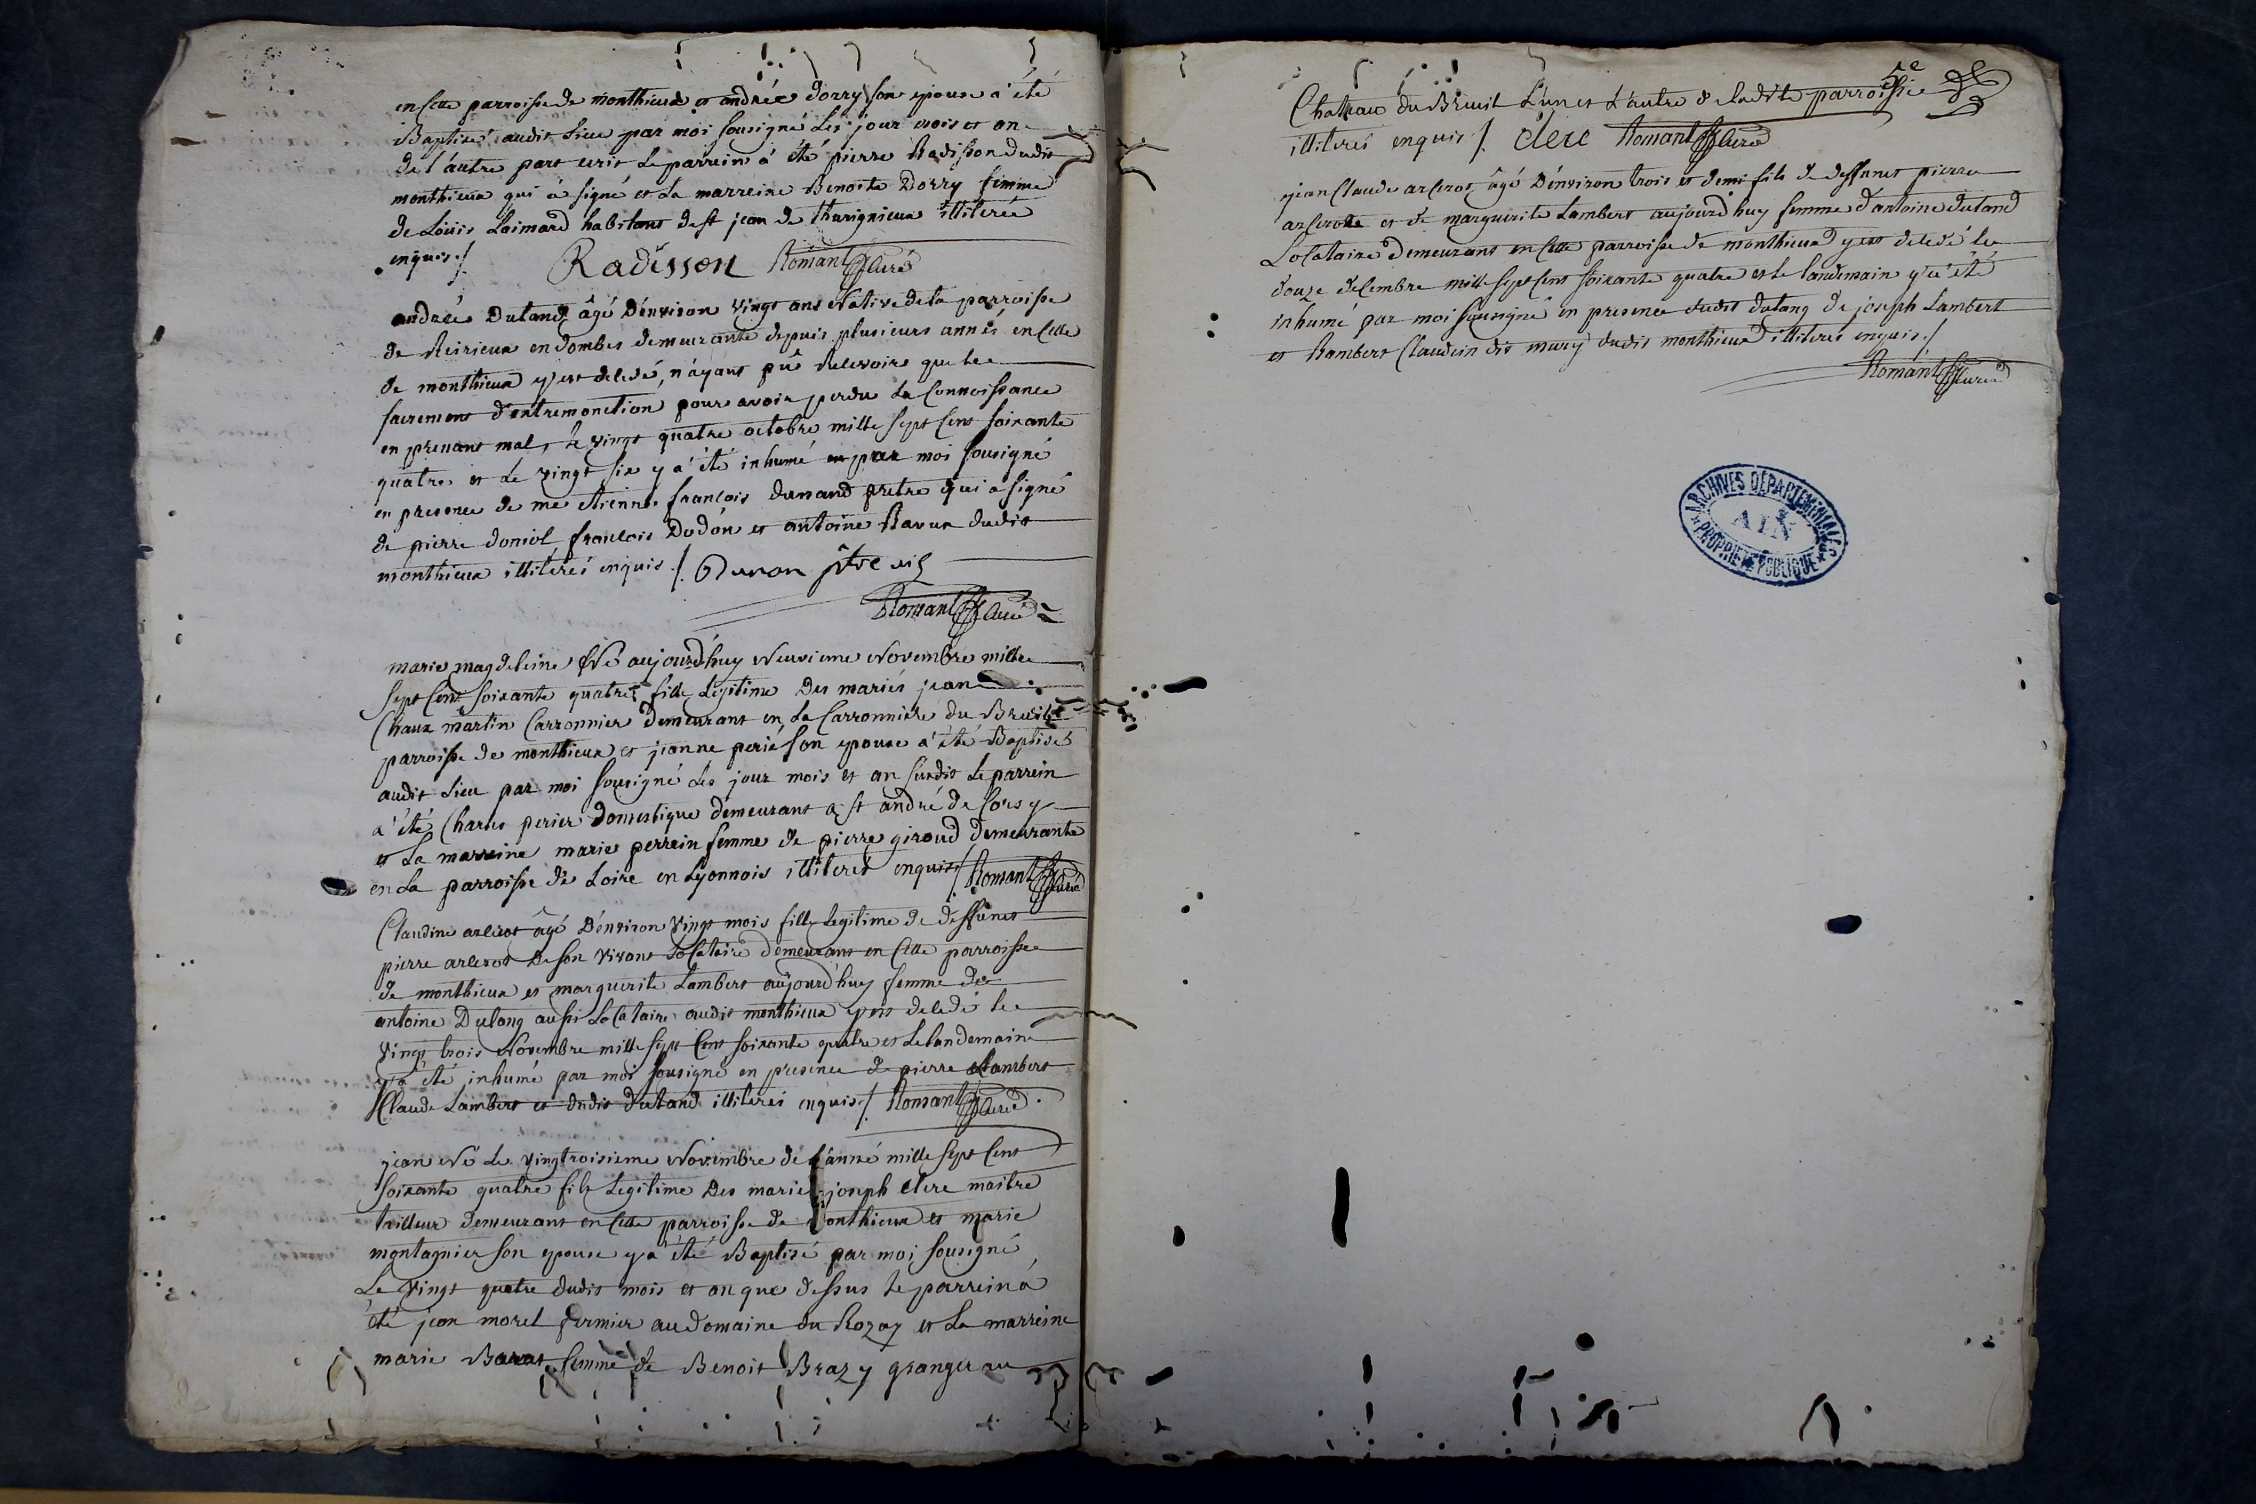 en cette parroisse de monthieux et andrée dorry son epouse a été
Baptisé audit Lieu par moi sousigné Les jour mois et an
de l'autre part ecrit Le parrein a été pierre Radisson dudit
monthieux qui a signé et La marreine Benoite Dorry femme
de Louis Laimard habitant de st jean de thurignieux illiterée
enquis ./. Radisson Romant Curé
andrée Dutand âgé D'environ vingt ans Native de la parroisse
de Reirieux en dombes demeurante depuis plusieurs année en cette
de monthieux y est deledé, n'ayant pû Recevoir que le
sacrement d'extremonction pour avoir perdu La Connoissance
en prenant mal, Le vingt quatre octobre mille sept cent soixante
quatre et Le vingt six y a été inhumé par moi sousigné
en presence de me etienne françois dunand pretre qui a signé
de pierre doniol françois Dodon et antoine Ravux dudit
monthieux illiterés enquis ./. Dunan ptre vic
Romant Curé
marie magdeleine Né aujourd'huy Neuvieme Novembre mille
sept cent soixante quatre fille Legitime Des mariés jean
Chaux martin Carronnier demeurant en La Carronnière du Breuil
parroisse de monthieux et jeanne perié son epouse a été Baptisé
audit Lieu par moi sousigné Les jour mois et an susdit Le parrein
a été Charles perier domestique demeurant a st andré de Corsy
et La marreine marie perrein femme de pierre giroud demeurante
en La parroisse de Loire en Lyonnois illiterés enquis ./. Romant Curé
Claudine arcerot âgé D'environ vingt mois fille Legitime de deffunct
pierre arcerot De son vivant Locataire demeurant en cette parroisse
de monthieux et marguerite Lambert aujourd'huy femme de
antoine Dulong aussi Locataire audit monthieux y est deledé le
vingt trois Novembre mille sept cent soixante quatre et Le landemain
y a été inhumé par moi sousigné en presence de pierre Lambert
Claude Lambert et dudit dutand illiterés enquis ./. Romant Curé
jean Né Le vingtroisieme Novembre de l'année mille sept cent
soixante quatre fils Legitime Des mariés joseph clerc maitre
tailleur demeurant en cette parroisse de monthieux et marie
montagnier son epouse y a été Baptisé par moi sousigné
Le vingt quatre dudit mois et an que dessus le parrein a
été jean morel fermier au domaine du Rozay et La marreine
marie Barat femme de Benoit Brazy granger au
5e
Chateau du Breuil L'un et L'autre de ladite parroisse
illiterés enquis ./. Clerc Romant Curé
jean Claude arcerot âgé D'environ trois et demi fils de deffunct pierre
arcerot et de marguerite Lambert aujourd'huy femme d'antoine dutand
Locataire demeurant en cette parroisse de monthieux y est deledé le
douze decembre mille sept cent soixante quatre et le landemain y a été
inhumé par moi sousigné en presence dudit dutang de joseph Lambert
et Rambert Claudein dit mury dudit monthieux illiterés enquis ./.
Romant Curé
ARCHIVES DÉPARTEMENTALES
AIN
PROPRIÉTÉ PUBLIQUE